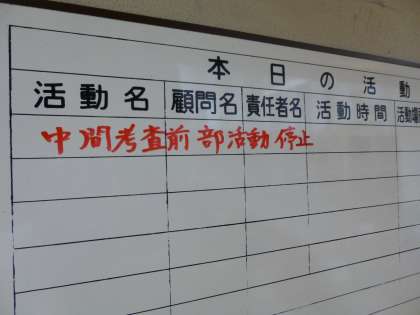 本日の活動
活動名 顧問名 責任者名 活動時間 活動場
中間考査前部活動停止